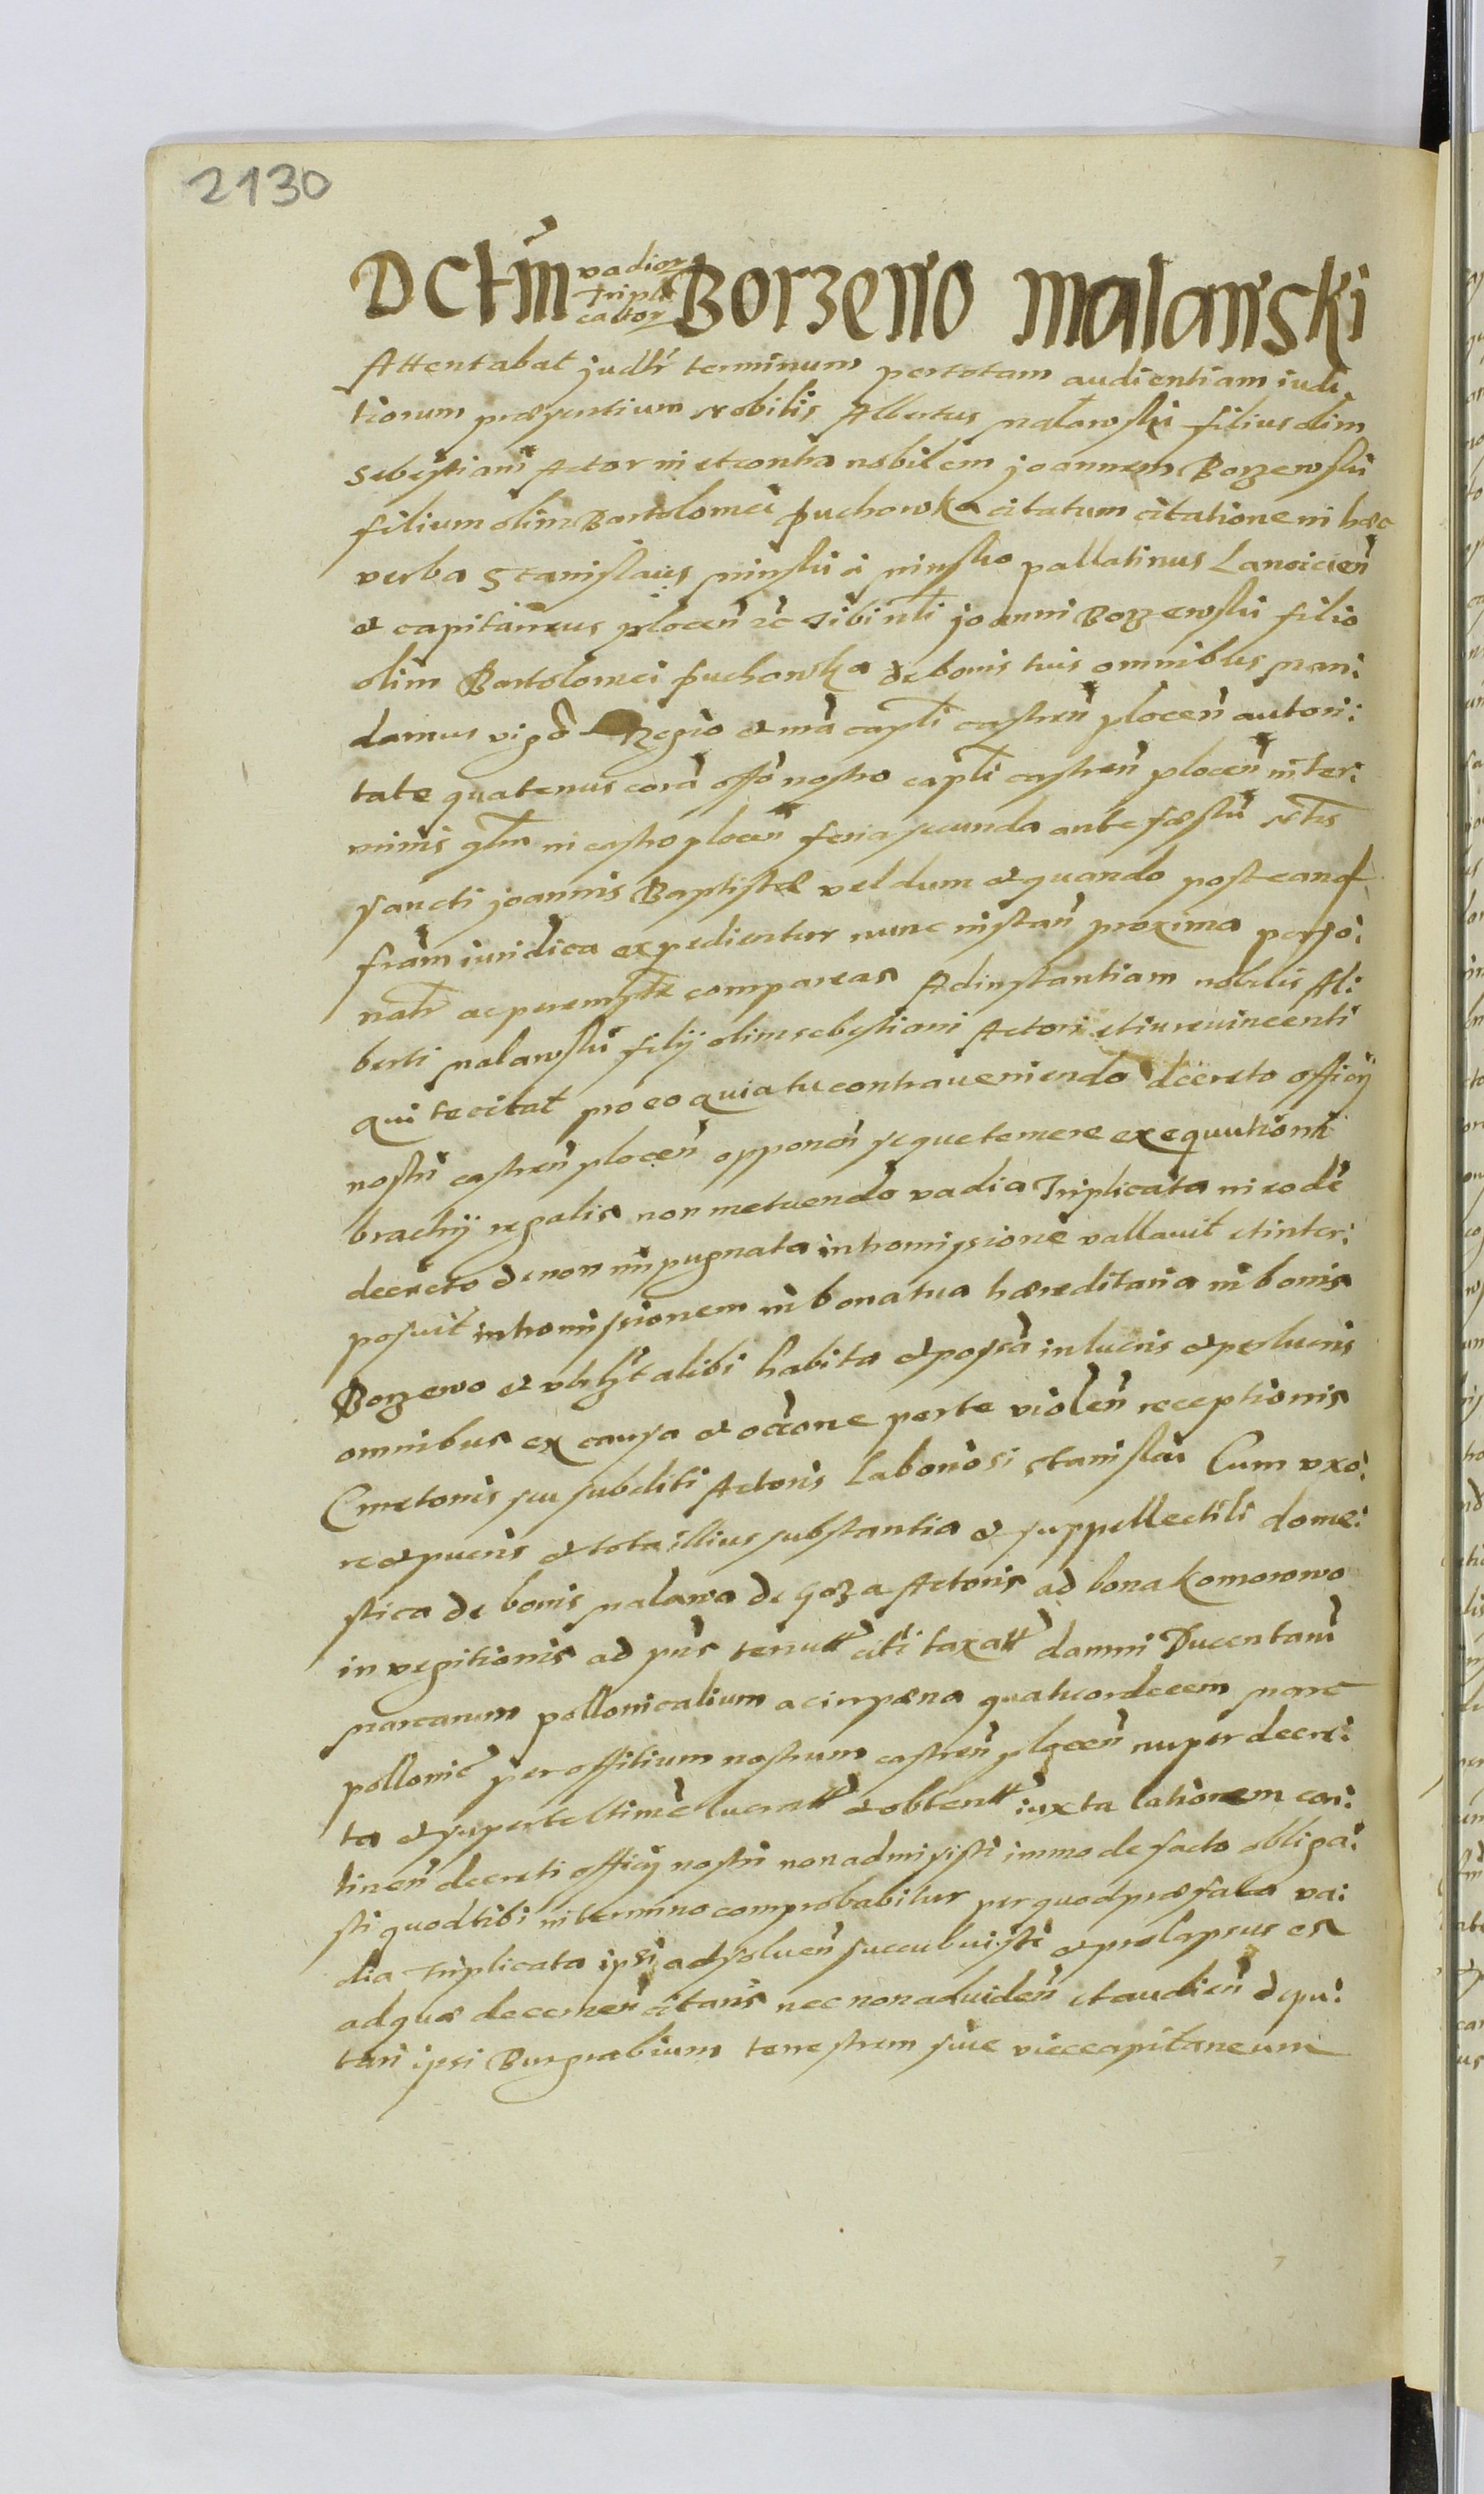 2130
Dctm̃ vadior Tripli cator Borzewo Malawski
Attentabat judlr̃ terminum pertotam audientiam iudi
tiorum præsentium Nobilis Albertus Malowski filius olim
Sebestiani Actor in et contra nobilem joannem Borzewski
filium olim Bartolomei Puchowka citatum citatione in hæc
verba Stanislaus Minski a Minsko pallatinus Lancicień
et capitaneus plocen̄ zc̄ Tibi nlĩ joanni Borzewski filio
olim Bartolomei Puchowska de bonis tuis omnibus Man:
damus vigō Regio et mā capłi castren̄ plocen̄ autori:
tate quatenus corā offō nostro capłi castren̄ plocen̄ in ter:
minis qłm in castro plocen̄ feria secunda ante fæstū Ntis
sancti joannis Baptistæ vel dum et quando post eand
fram̄ iuridica expedientur nunc instan̄ proxima perso:
nalr̃ ac peremptē compareas Ad instantiam nobilis Al:
berti Malawski filij olim Sebestiani Actori et iure vincenti
Qui te citat pro eo quia tu contraveniendo decreto officij
nostri castren̄ plocen̄ opponen̄ seque temere exequutioni
brachij regalis non metuendo vadia Triplicata in eodē
decreto de non impugnata intromissionē vallavit et inter:
posuit intromissionem in bona tua hæreditaria in bonis
Borzewo et vblzt alibi habita et possā in lucris et perlucris
omnibus ex causa et occōne per te violen̄ receptionis
Cmetonis seu subditi Actoris Laboriosi Stanislai Cum vxo:
re et pueris et tota illius substantia et suppellectili dome:
stica de bonis Malawa de Goza Actoris ad bona Komorowo
in vegitionis ad pñs tenutt citi taxatt damni Ducentarū
Marcarum pollonicalium ac in pæna quatuordecem Marc
pollonic̄ per offitium nostrum castren̄ plocen̄ nuper decre:
ta et super te ltimē lucratt et obtentt iuxta lationem con:
tinen̄ decreti officij nostri non admisisti immo de facto obliga:
sti quod tibi in termino comprobabitur per quod præfata va:
dia Triplicata ipsi ad solven̄ succubuisti et prolapsus es
ad quæ decernen̄ citaris nec non ad viden̄ et audien̄ depu:
tari ipsi Burgrabium terrestrem sive vicecapitaneum